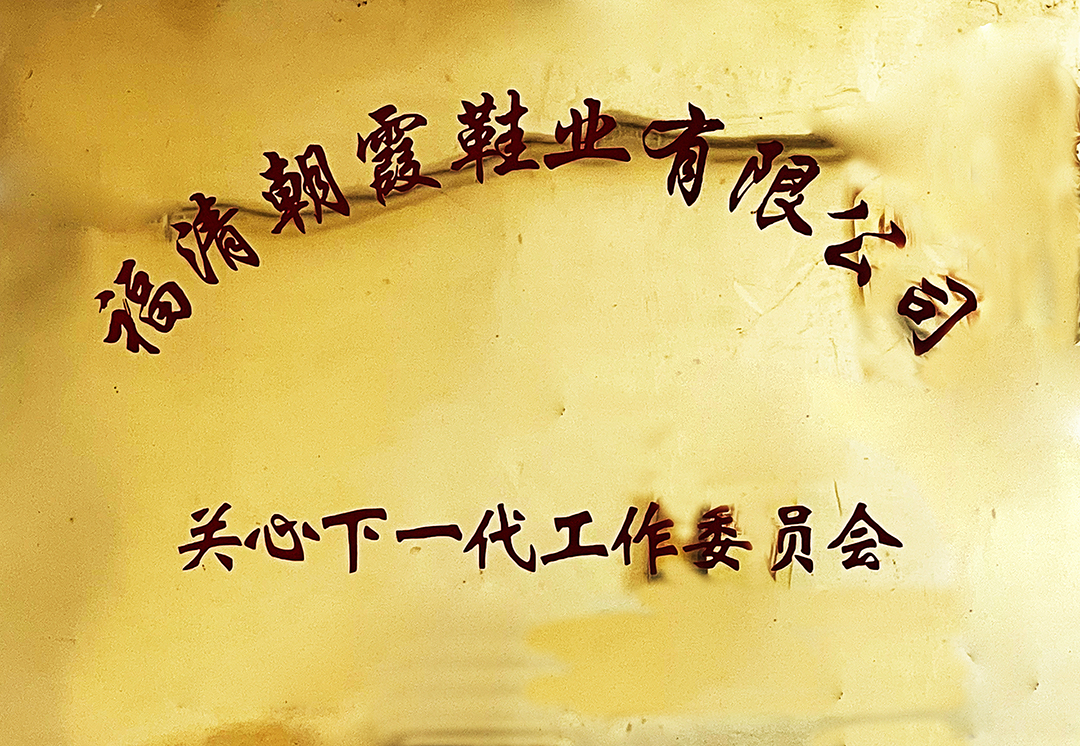 福清朝霞鞋业有限公司
关心下一代工作委员会